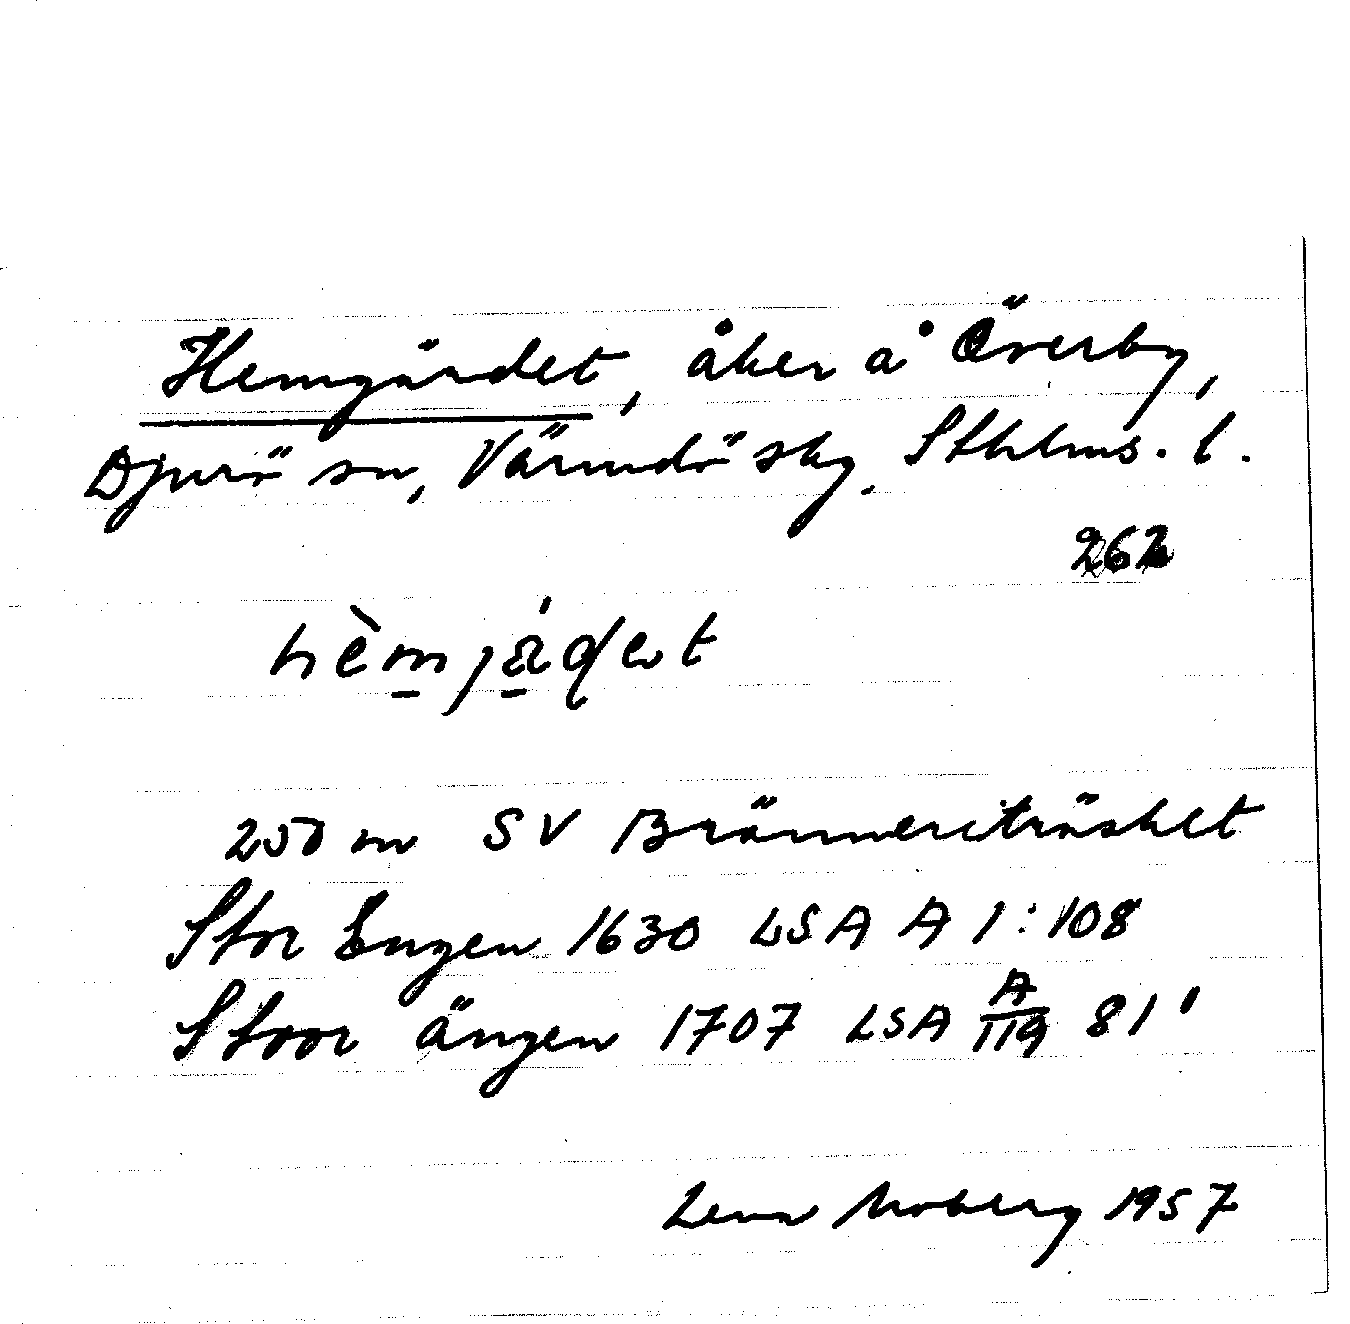 Hemgärdet, åker å Överby,
Djurö sn, Värmdö skg. Sthlms. l.
262
hèmjä́det
250 m SV Bränneriträsket
Stor Engen 1630 LSA A 1:108
Stoor ängen 1707 LSA A/119 81'
Lena Moberg 1957